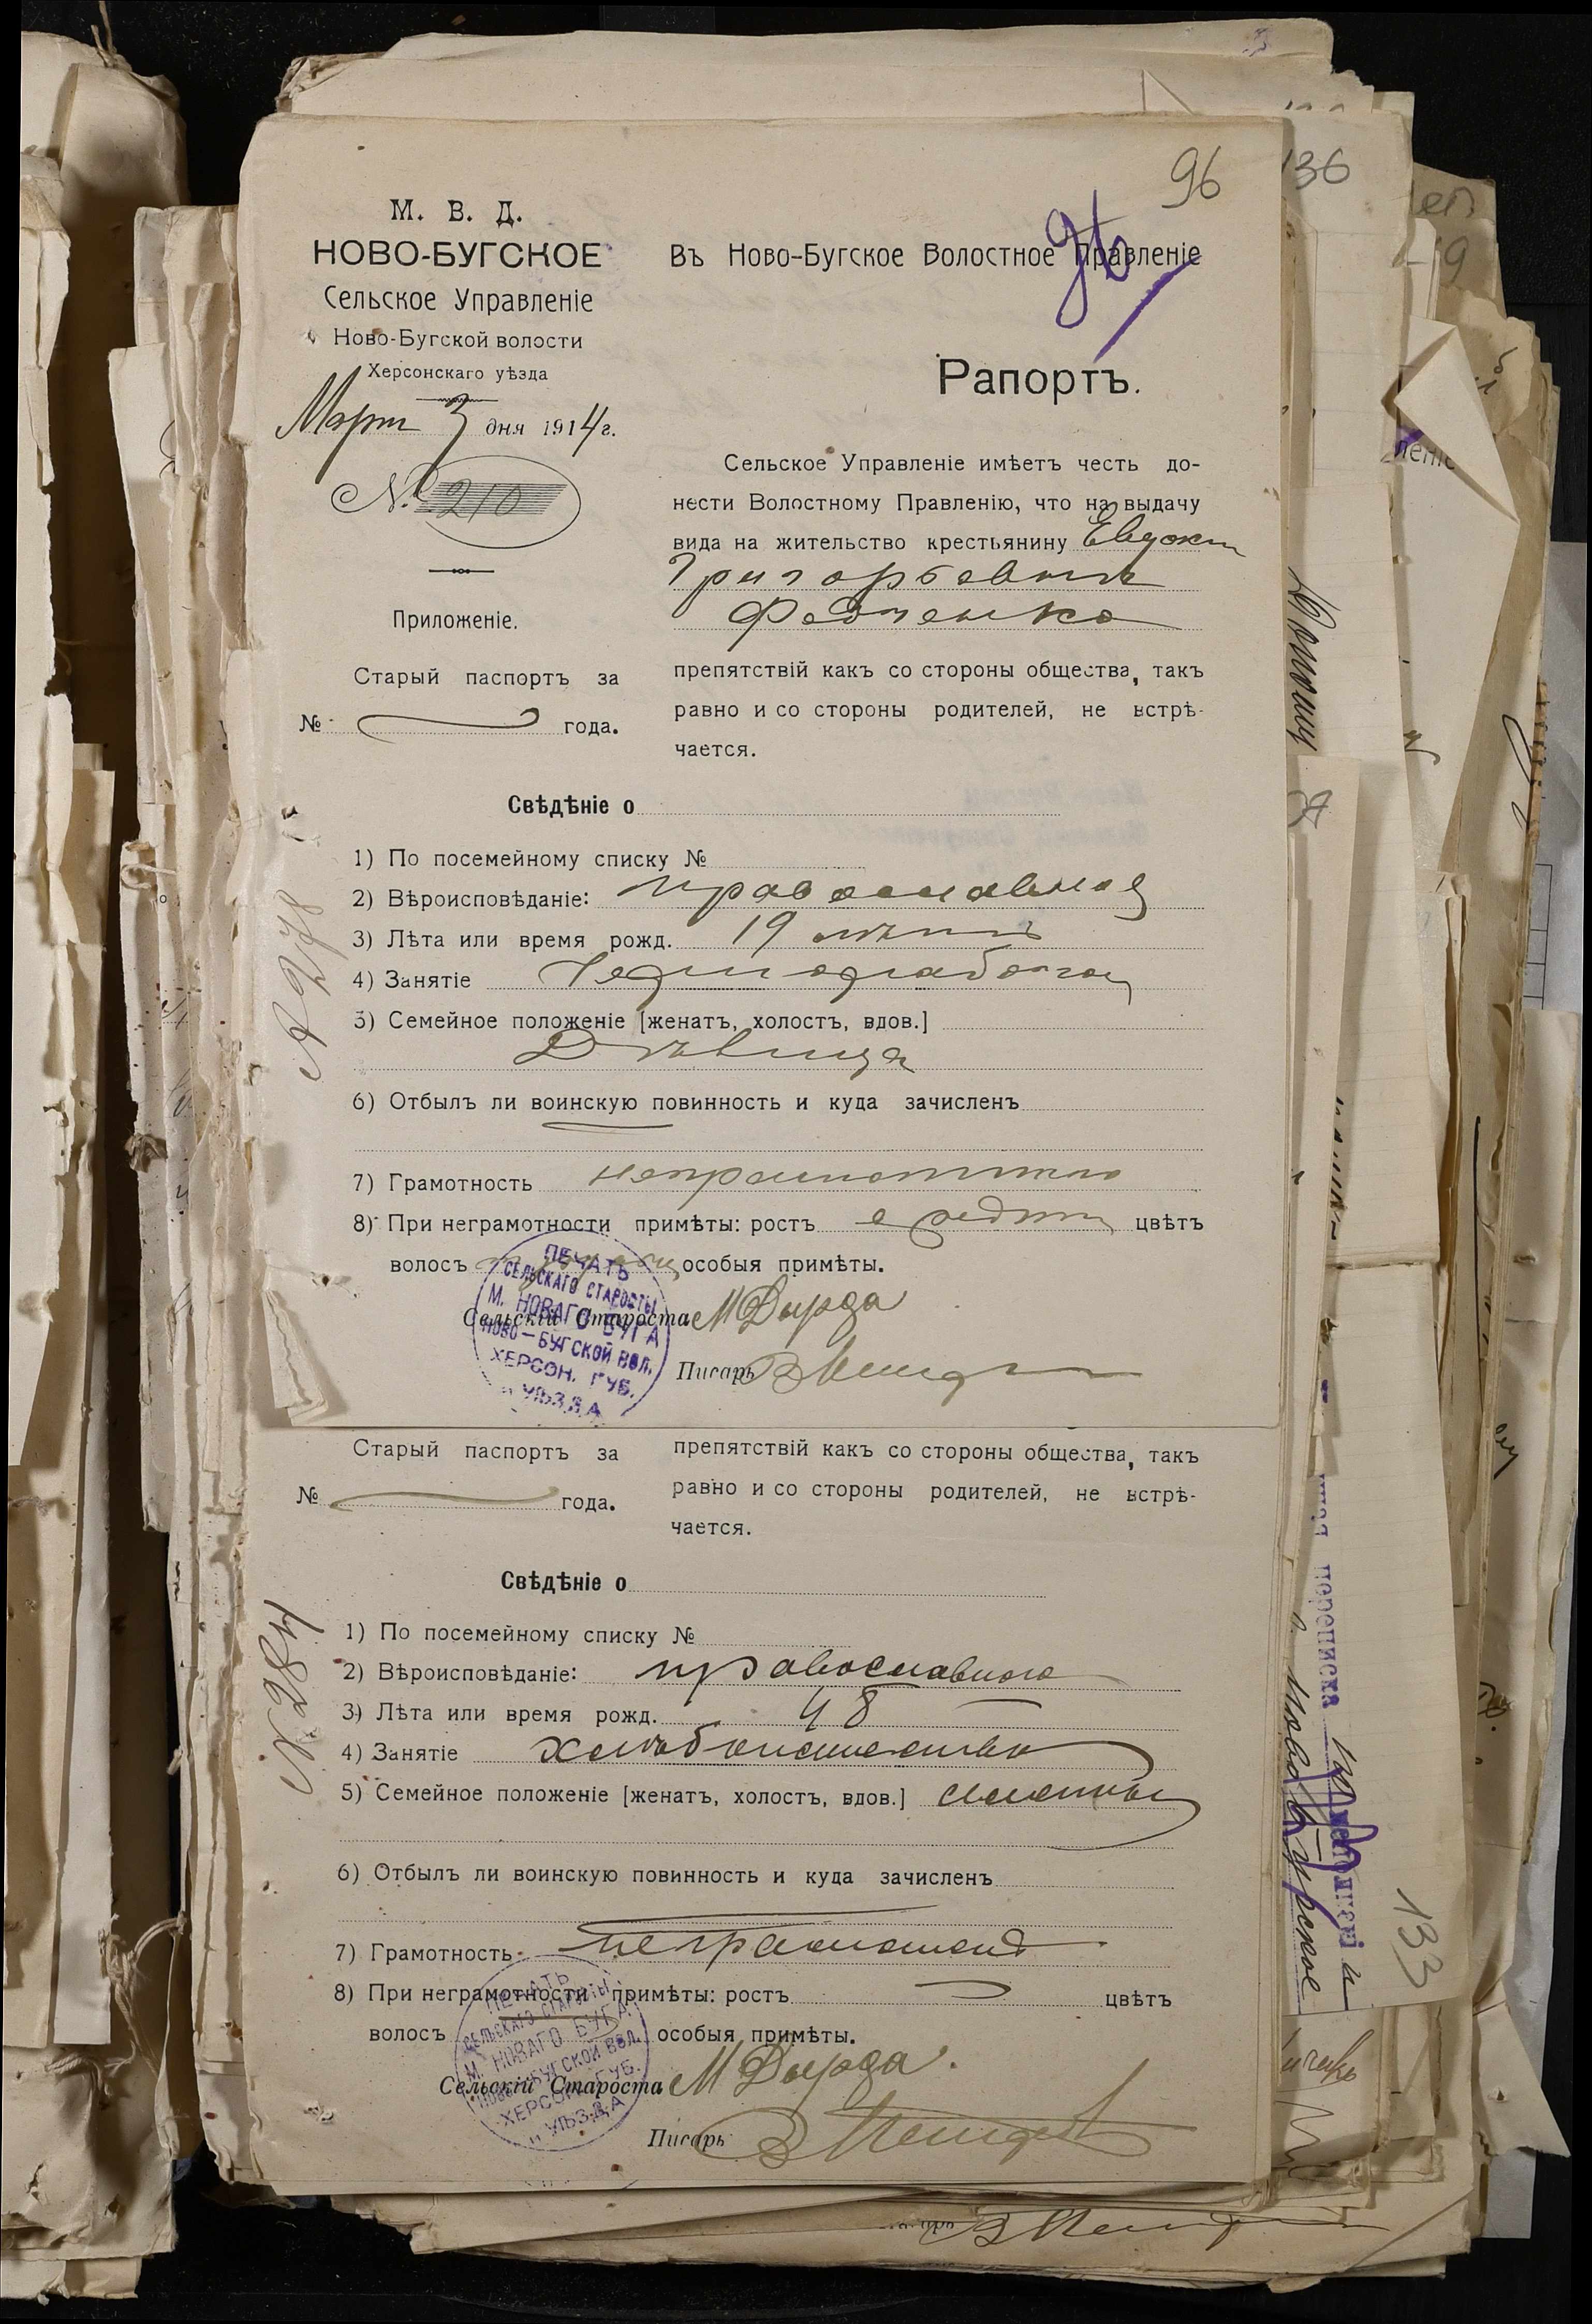 96
136
М. В. Д.
НОВО-БУГСКОЕ
Сельское Управленіе
Ново-Бугской волости
Херсонскаго уѣзда
Март 3 дня 1914 г.
№ 210
Приложеніе.
Старый паспортъ за
№ года.
Въ Ново-Бугское Волостное Правленіе
96
Рапортъ.
Сельское Управленіе имѣетъ честь до-
нести Волостному Правленію, что на выдачу
вида на жительство крестьянину Евдокіи
Григорьевнѣ
Федченко
препятствій какъ со стороны общества, такъ
равно и со стороны родителей, не встрѣ-
чается.
Свѣдѣніе о
1) По посемейному списку №
2) Вѣроисповѣданіе: православная
3) Лѣта или время рожд. 19 лѣтъ
4) Занятіе
5) Семейное положеніе [женатъ, холостъ, вдов.]
Дѣвица
6) Отбылъ ли воинскую повинность и куда зачисленъ
7) Грамотность неграмотная
8) При неграмотности примѣты: ростъ средній цвѣтъ
волосъ особыя примѣты.
Сельскій Староста М Дырда
Писарь
ПЕЧАТЬ
СЕЛЬСКАГО СТАРОСТЫ
М. НОВАГО БУГА
НОВО-БУГСКОЙ ВОЛ.
ХЕРСОН. ГУБ.
И УѢЗДА
№ 278
Старый паспортъ за
№ года.
препятствій какъ со стороны общества, такъ
равно и со стороны родителей, не встрѣ-
чается.
Свѣдѣніе о
1) По посемейному списку №
2) Вѣроисповѣданіе: православнаго
3) Лѣта или время рожд. 48
4) Занятіе хлѣбопашество
5) Семейное положеніе [женатъ, холостъ, вдов.]
6) Отбылъ ли воинскую повинность и куда зачисленъ
7) Грамотность неграмотенъ
8) При неграмотности примѣты: ростъ цвѣтъ
волосъ особыя примѣты.
Сельскій Староста М Дырда.
Писарь
ПЕЧАТЬ
СЕЛЬСКАГО СТАРОСТЫ
М. НОВАГО БУГА
НОВО-БУГСКОЙ ВОЛ.
ХЕРСОН. ГУБ.
И УѢЗДА
№ 284
переписка
133